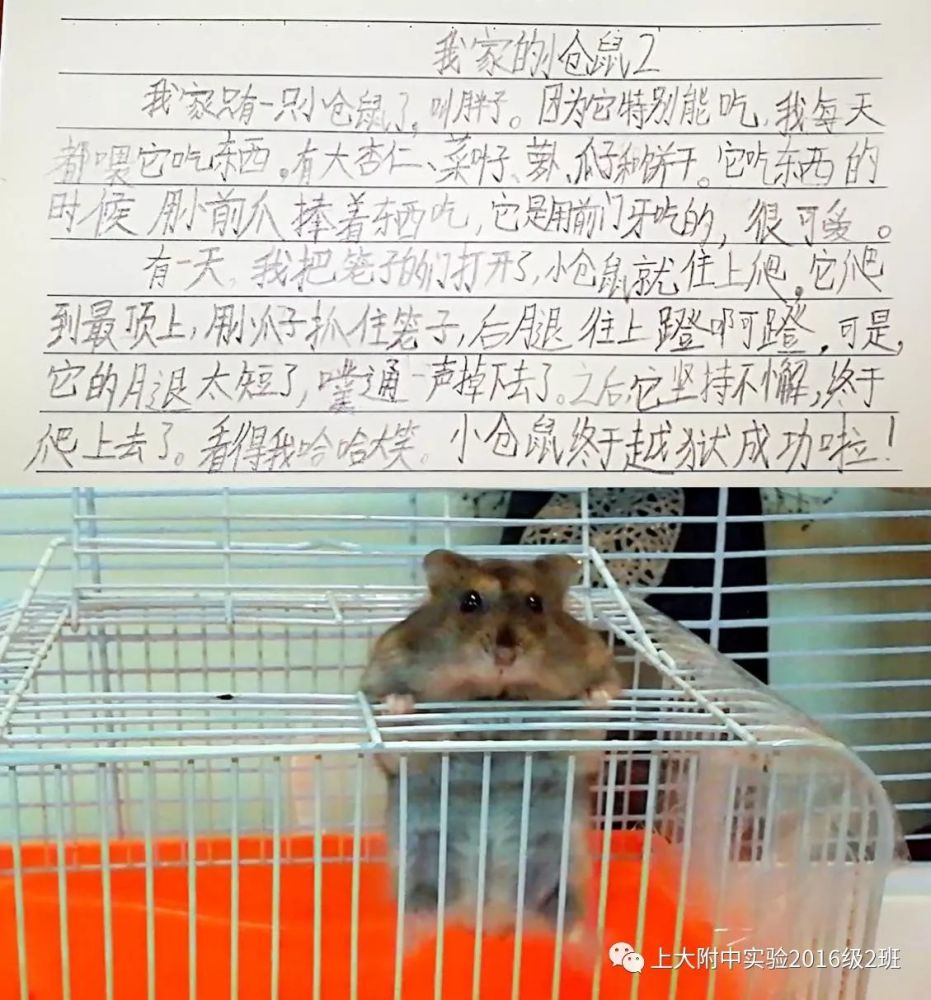 我家的小仓鼠2
我家只有一只小仓鼠了,叫胖子。因为它特别能吃,我每天
都喂它吃东西。有大杏仁、菜叶子、萝卜、瓜子和饼干。它吃东西的
时候用小前爪捧着东西吃,它是用前门牙吃的,很可爱。
有一天,我把笼子的门打开了,小仓鼠就往上爬。它爬
到最顶上,用小爪子抓住笼子,后腿往上蹬啊蹬,可是,
它的腿太短了,噗通一声掉下去了。之后,它坚持不懈,终于
爬上去了。看得我哈哈大笑。小仓鼠终于越狱成功啦!
上大附中实验2016级2班